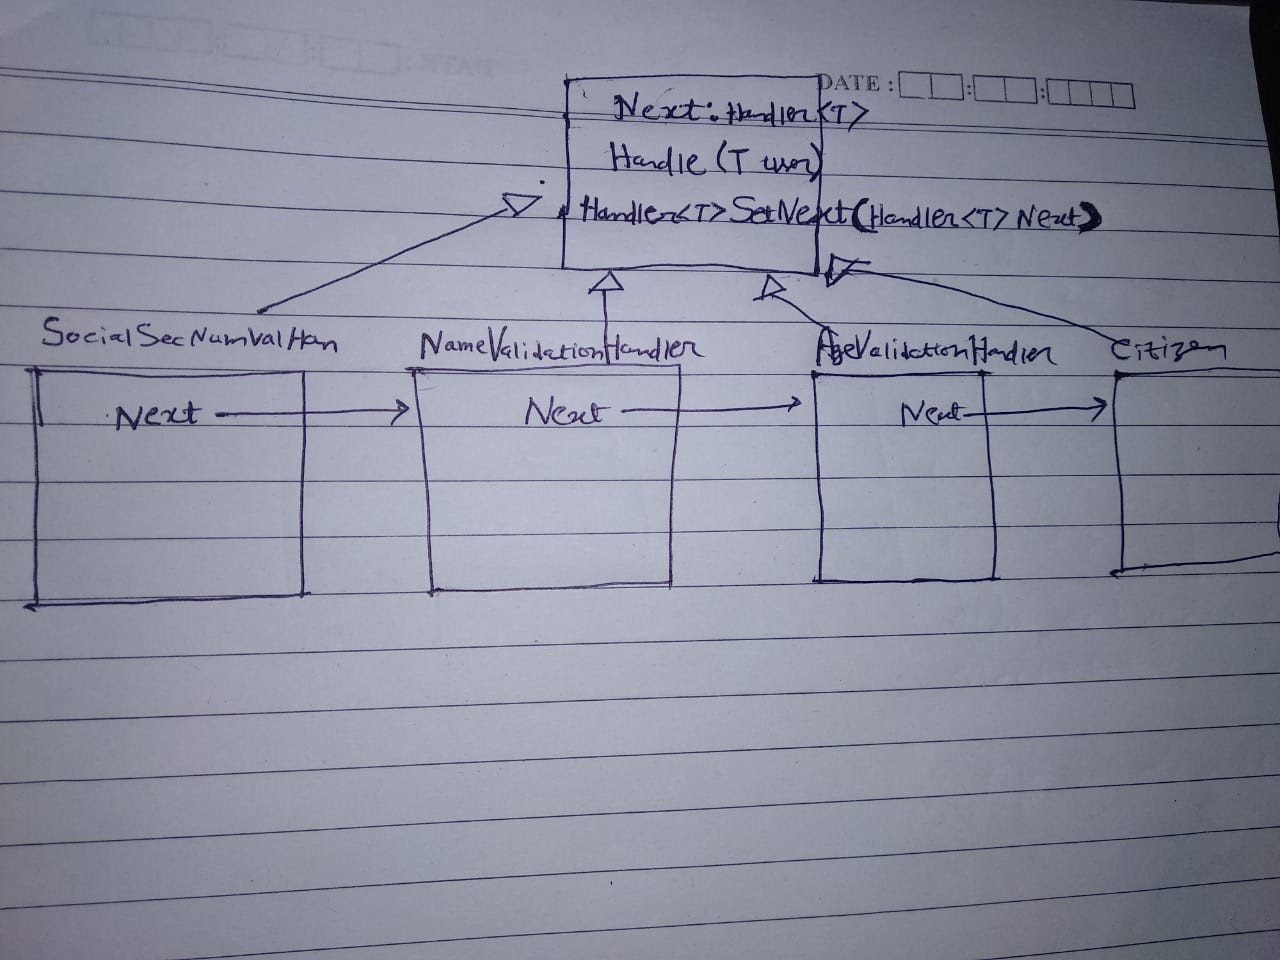 DATE :
Next : Handler<T>
Handle (T user)
Handler<T> SetNext(Handler<T> Next)
SocialSecNumValHan
NameValidationHandler
AgeValidationHandler
Citizen
Next
Next
Next